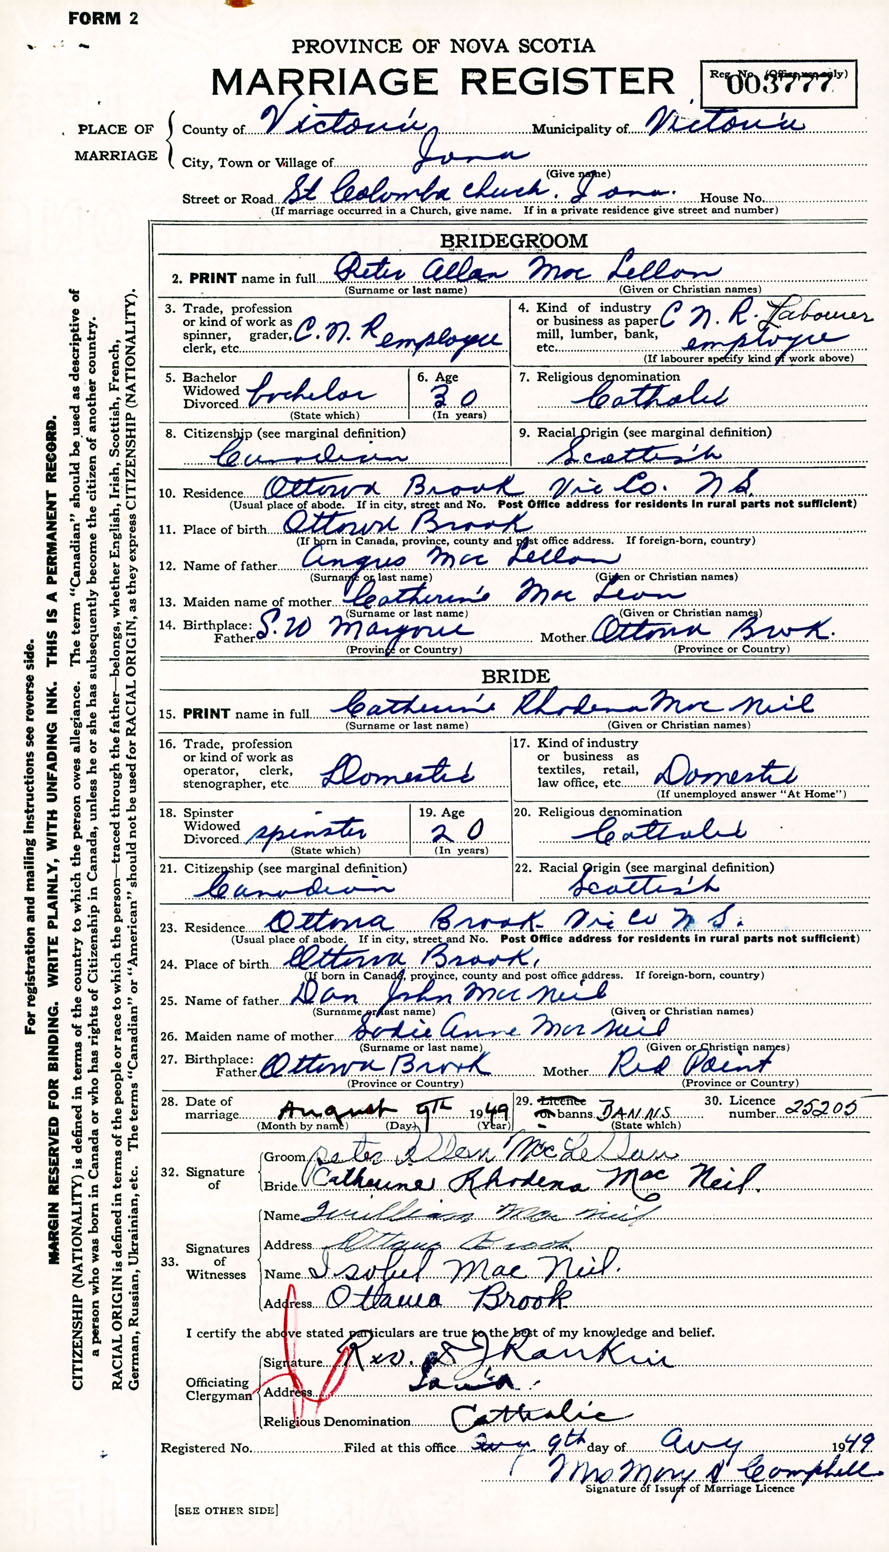 FORM 2
PROVINCE OF NOVA SCOTIA
MARRIAGE REGISTER
Reg. No. (Office use only)
003777
PLACE OF MARRIAGE
County of Victoria Municipality of Victoria
City, Town or Village of Iona
(Give name)
Street or Road St Colomba Church. Iona. House No.
(If marriage occurred in a Church, give name. If in a private residence give street and number)
BRIDEGROOM
2. PRINT name in full Peter Allan Mac Lellan
(Surname or last name) (Given or Christian names)
3. Trade, profession or kind of work as spinner, grader, clerk, etc. C.N.R employee
4. Kind of industry or business as paper mill, lumber, bank, etc. C N. R. Labourer employee
(If labourer specify kind of work above)
5. Bachelor Widowed Divorced bachelor
(State which)
6. Age 30
(In years)
7. Religious denomination Catholic
8. Citizenship (see marginal definition) Canadian
9. Racial Origin (see marginal definition) Scottish
10. Residence Ottawa Brook Vic Co. N S.
(Usual place of abode. If in city, street and No. Post Office address for residents in rural parts not sufficient)
11. Place of birth Ottawa Brook
(If born in Canada, province, county and post office address. If foreign-born, country)
12. Name of father Angus Mac Lellan
(Surname or last name) (Given or Christian names)
13. Maiden name of mother Catherine Mac Lean
(Surname or last name) (Given or Christian names)
14. Birthplace: Father S. W Margaree Mother Ottawa Brook.
(Province or Country) (Province or Country)
BRIDE
15. PRINT name in full Catherine Rhodena Mac Neil
(Surname or last name) (Given or Christian names)
16. Trade, profession or kind of work as operator, clerk, stenographer, etc. Domestic
17. Kind of industry or business as textiles, retail, law office, etc. Domestic
(If unemployed answer "At Home")
18. Spinster Widowed Divorced spinster
(State which)
19. Age 20
(In years)
20. Religious denomination Catholic
21. Citizenship (see marginal definition) Canadian
22. Racial Origin (see marginal definition) Scottish
23. Residence Ottawa Brook Vic Co N S.
(Usual place of abode. If in city, street and No. Post Office address for residents in rural parts not sufficient)
24. Place of birth Ottawa Brook.
(If born in Canada, province, county and post office address. If foreign-born, country)
25. Name of father Dan John Mac Neil
(Surname or last name) (Given or Christian names)
26. Maiden name of mother Sadie Anne Mac Neil
(Surname or last name) (Given or Christian names)
27. Birthplace: Father Ottawa Brook Mother Red Point
(Province or Country) (Province or Country)
28. Date of marriage August 9th 1949
(Month by name) (Day) (Year)
29. Licence or banns BANNS
(State which)
30. Licence number 25205
32. Signature of
Groom Peter Allan MacLellan
Bride Catherine Rhodena Mac Neil.
33. Signatures of Witnesses
Name William Mac Neil
Address Ottawa Brook
Name Isobel Mac Neil.
Address Ottawa Brook
I certify the above stated particulars are true to the best of my knowledge and belief.
Officiating Clergyman
Signature Rev. Rankin
Address Iona.
Religious Denomination Catholic
Registered No. Filed at this office 9th day of Aug 1949
Mrs Mary Campbell
Signature of Issuer of Marriage Licence
[SEE OTHER SIDE]
For registration and mailing instructions see reverse side.
MARGIN RESERVED FOR BINDING. WRITE PLAINLY, WITH UNFADING INK. THIS IS A PERMANENT RECORD.
CITIZENSHIP (NATIONALITY) is defined in terms of the country to which the person owes allegiance. The term "Canadian" should be used as descriptive of
a person who was born in Canada or who has rights of Citizenship in Canada, unless he or she has subsequently become the citizen of another country.
RACIAL ORIGIN is defined in terms of the people or race to which the person—traced through the father—belongs, whether English, Irish, Scottish, French,
German, Russian, Ukrainian, etc. The terms "Canadian" or "American" should not be used for RACIAL ORIGIN, as they express CITIZENSHIP (NATIONALITY).